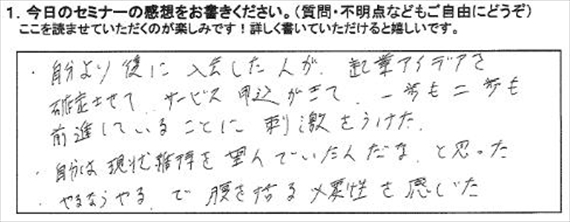 1. 今日のセミナーの感想をお書きください。(質問・不明点などもご自由にどうぞ)
ここを読ませていただくのが楽しみです!詳しく書いていただけると嬉しいです。
・自分より後に入会した人が、起業アイデアを
確定させて、サービス申込がきて、一歩も二歩も
前進していることに刺激をうけた
・自分は現状維持を望んでいたんだな、と思った
・やるならやる、で腹を括る必要性を感じた